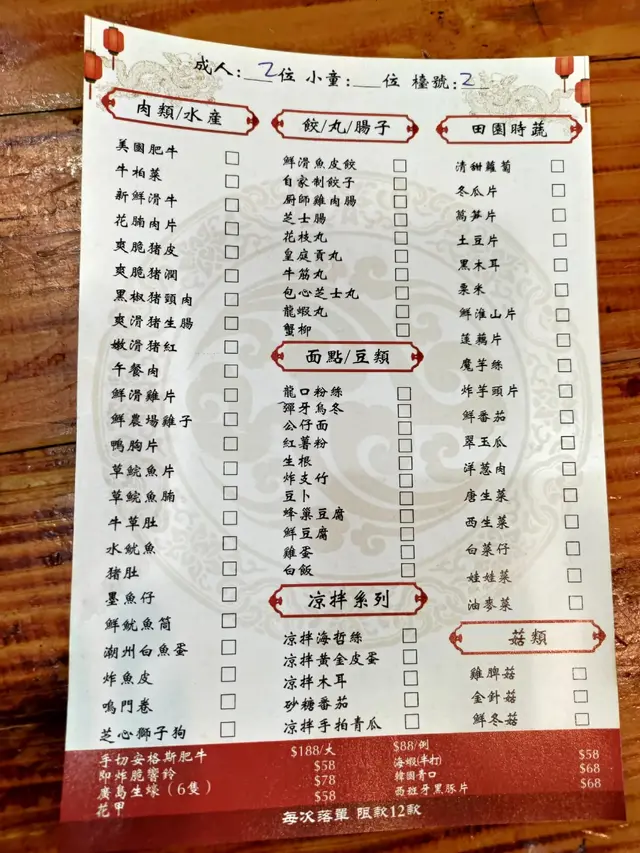 成人: 2 位 小童: 位 檯號: 2
肉類/水產
美國肥牛
牛柏葉
新鮮滑牛
花腩肉片
爽脆豬皮
爽脆豬潤
黑椒豬頸肉
爽滑豬生腸
嫩滑豬紅
午餐肉
鮮滑雞片
鮮農場雞子
鴨胸片
草鯇魚片
草鯇魚腩
牛草肚
水魷魚
豬肚
墨魚仔
鮮魷魚筒
潮州白魚蛋
炸魚皮
鳴門卷
芝心獅子狗
餃/丸/腸子
鮮滑魚皮餃
自家制餃子
廚師雞肉腸
芝士腸
花枝丸
皇庭貢丸
牛筋丸
包心芝士丸
龍蝦丸
蟹柳
面點/豆類
龍口粉絲
彈牙烏冬
公仔面
紅薯粉
生根
炸支竹
豆卜
蜂巢豆腐
鮮豆腐
雞蛋
白飯
凉拌系列
凉拌海哲絲
凉拌黃金皮蛋
凉拌木耳
砂糖番茄
凉拌手拍青瓜
田園時蔬
清甜蘿蔔
冬瓜片
萵笋片
土豆片
黑木耳
粟米
鮮淮山片
蓮藕片
魔芋絲
炸芋頭片
鮮番茄
翠玉瓜
洋蔥肉
唐生菜
西生菜
白菜仔
娃娃菜
油麥菜
菇類
雞脾菇
金針菇
鮮冬菇
手切安格斯肥牛 $188/大 $88/例
即炸脆響鈴 $58
廣島生蠔（6隻） $78
花甲 $58
海蝦(半打) $58
韓國青口 $68
西班牙黑豚片 $68
每次落單 限款12款